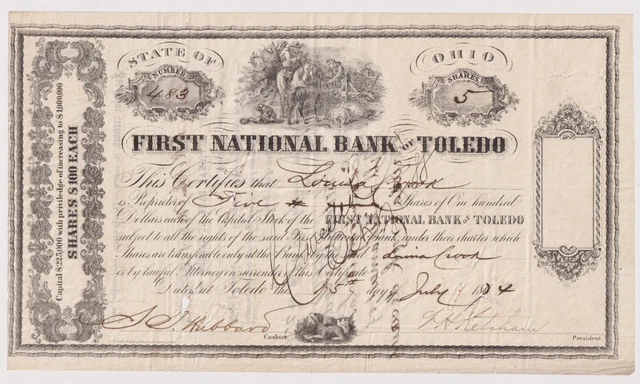 STATE OF OHIO
NUMBER
483
SHARES
5
FIRST NATIONAL BANK OF TOLEDO
Capital $225,000 with priviledge of increasing to $1,000,000
SHARES $100 EACH
This Certifies that Crook
is Proprietor of Five Shares of One hundred
Dollars each of the Capital Stock of the FIRST NATIONAL BANK OF TOLEDO
subject to all the rights of the said First National Bank, under their charter which
Shares are transferable only at the Bank by the said Crook
or by lawful Attorney on surrender of this Certificate
Dated at Toledo this 5th day of July 1874
Hubbard
Cashier
Ketcham
President